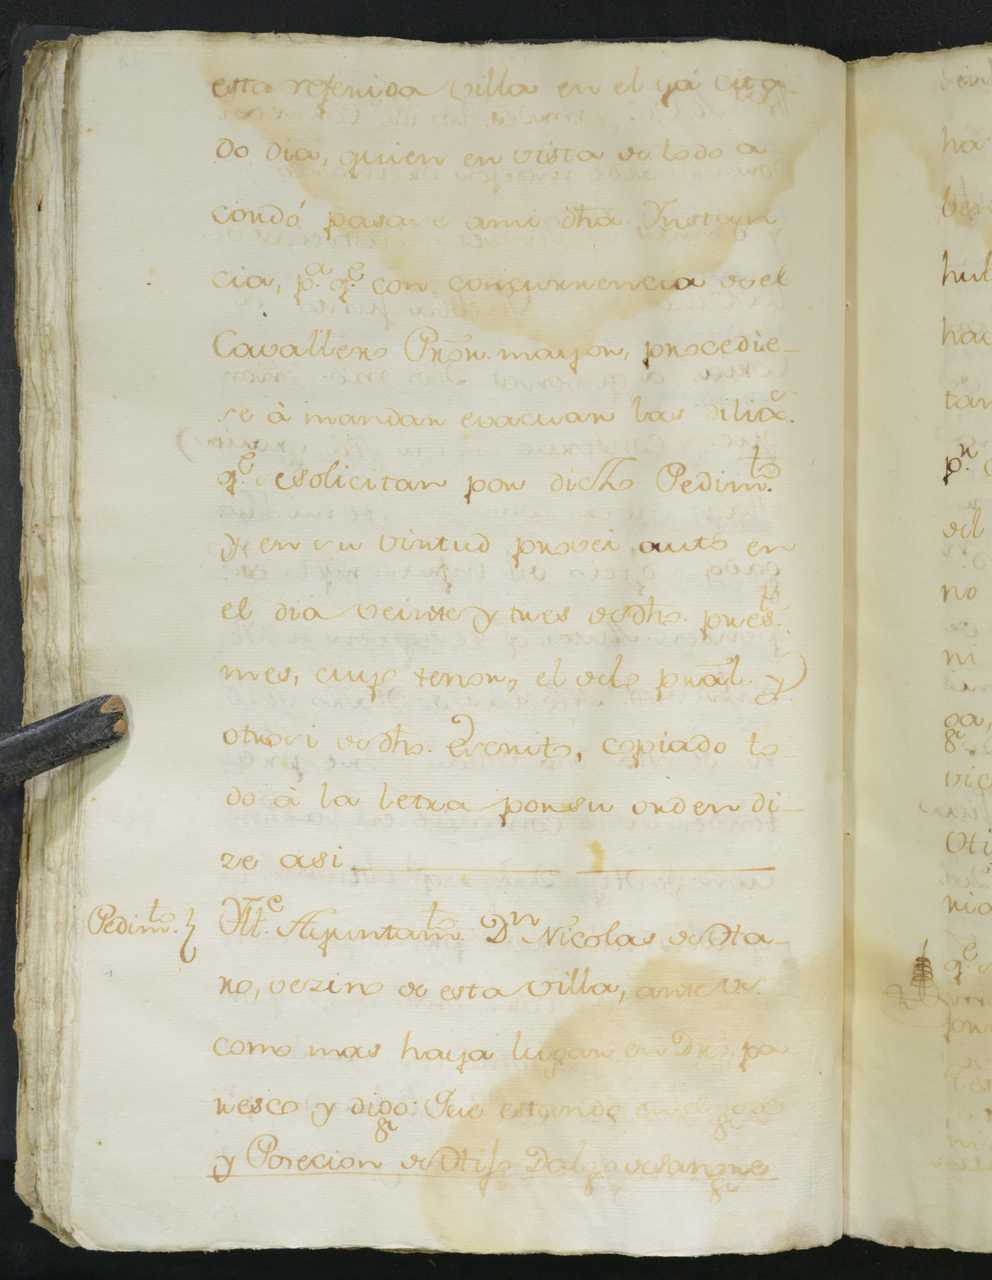 esta referida villa en el ya cita-
do dia, quien en vista de todo a
cordó pasase a mi dha Instan
cia, p.a q.e con concurrencia de el
Cavallero Prõr. mayor, procedie-
se à mandar evacuar las dilig.
q.e se solicitan por dicho Pedim.to
y en su virtud proveí auto en
el dia veinte y tres de dho. pres.te
mes, cuyo tenor, el de lo prãl. y
otrosi de dho. Escrito, copiado to
do à la letra por su orden di-
ze asi
Pedim.to } Ill.e Ayuntam.to D.n Nicolas de Ota-
ño, vezino de esta villa, ante V.S.
como mas haya lugar en Dro. pa
resco y digo: Que estando en el goze
y Posecion de Hijo Dalgo de sangre